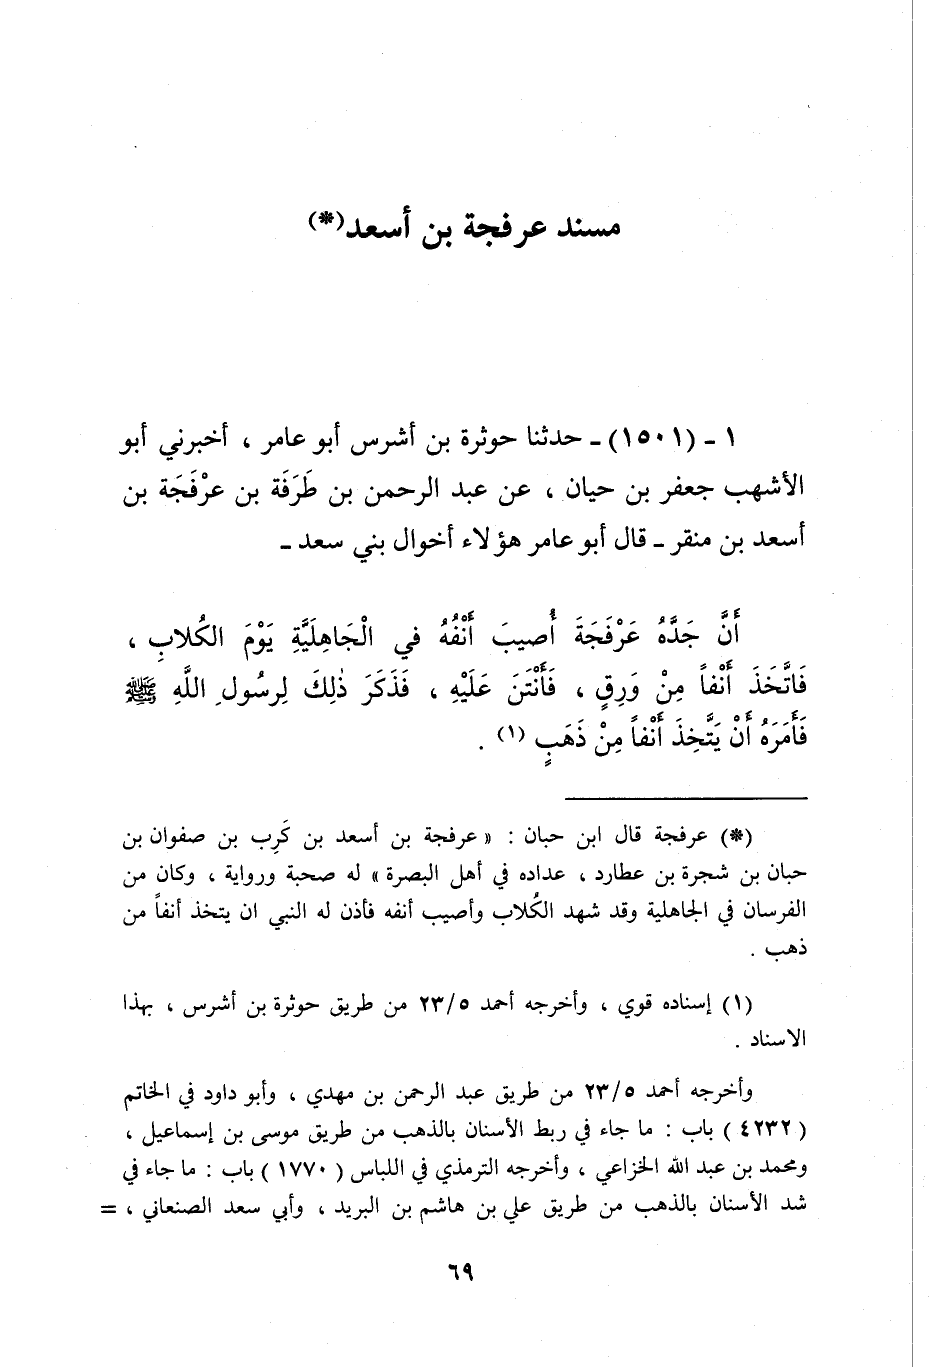 مسند عرفجة بن أسعد(*)
١ ـ (١٥٠١) ـ حدثنا حوثرة بن أشرس أبو عامر ، أخبرني أبو
الأشهب جعفر بن حيان ، عن عبد الرحمن بن طَرَفَة بن عرْفَجَة بن
أسعد بن منقر ـ قال أبو عامر هؤلاء أخوال بني سعد ـ
أَنَّ جَدَّهُ عَرْفَجَةَ أُصيبَ أَنْفُهُ في الْجَاهِلَيَّةِ يَوْمَ الكُلابِ ،
فَاتَّخَذَ أَنْفاً مِنْ وَرِقٍ ، فَأَنْتَنَ عَلَيْهِ ، فَذَكَرَ ذٰلِكَ لِرسُولِ اللَّهِ ﷺ
فَأَمَرَهُ أَنْ يَتَّخِذَ أَنْفاً مِنْ ذَهَبٍ (١) .
(*) عرفجة قال ابن حبان : « عرفجة بن أسعد بن كَرِب بن صفوان بن
حبان بن شجرة بن عطارد ، عداده في أهل البصرة » له صحبة ورواية ، وكان من
الفرسان في الجاهلية وقد شهد الكُلاب وأصيب أنفه فأذن له النبي ان يتخذ أنفاً من
ذهب .
(١) إسناده قوي ، وأخرجه أحمد ٢٣/٥ من طريق حوثرة بن أشرس ، بهذا
الاسناد .
وأخرجه أحمد ٢٣/٥ من طريق عبد الرحمن بن مهدي ، وأبو داود في الخاتم
( ٤٢٣٢ ) باب : ما جاء في ربط الأسنان بالذهب من طريق موسى بن إسماعيل ،
ومحمد بن عبد الله الخزاعي ، وأخرجه الترمذي في اللباس ( ١٧٧٠ ) باب : ما جاء في
شد الأسنان بالذهب من طريق علي بن هاشم بن البريد ، وأبي سعد الصنعاني ، =
٦٩